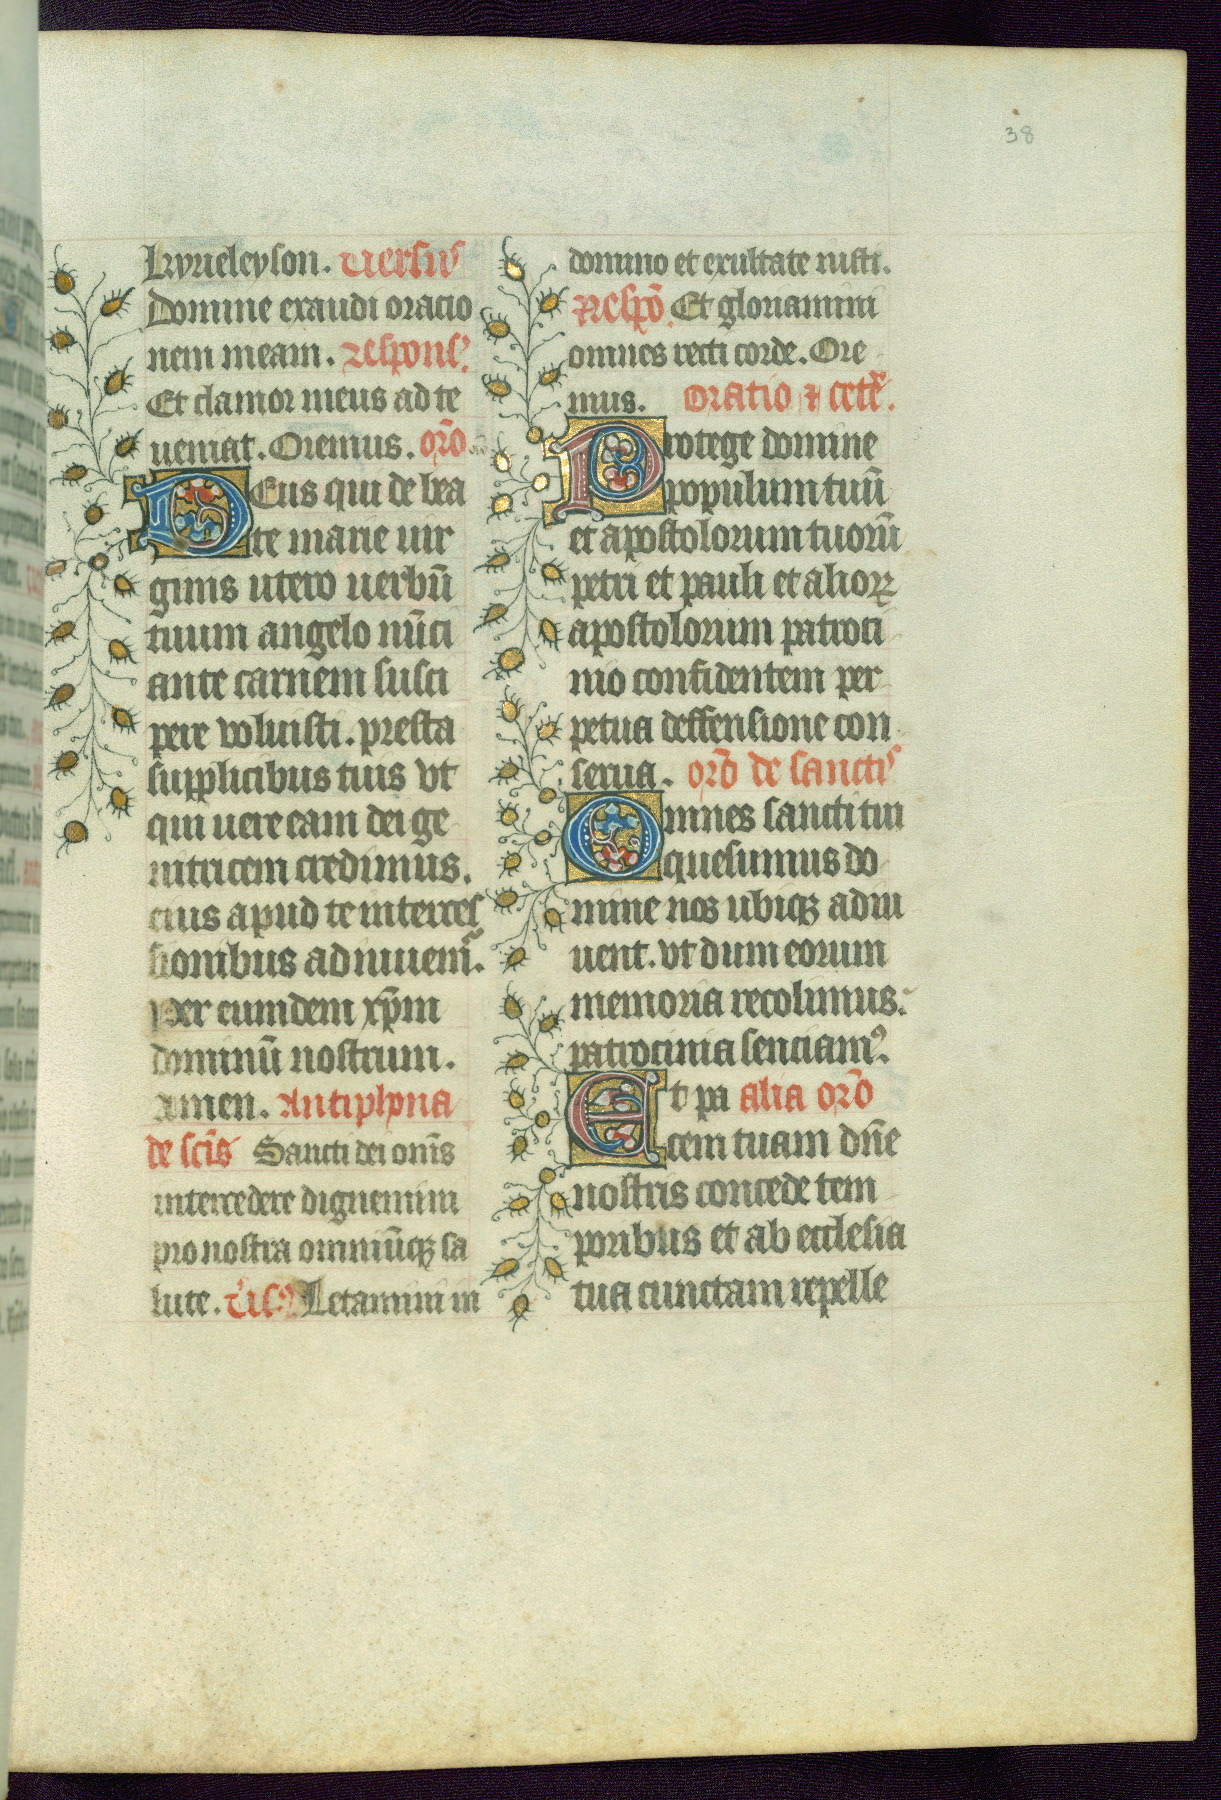 38
kyrieleyson. versus
Domine exaudi oracio
nem meam. Respons'
Et clamor meus ad te
ueniat. Oremus. orõ
Deus qui de bea
te marie uir
ginis utero uerbũ
tuum angelo nũci
ante carnem susci
pere voluisti. presta
supplicibus tuis vt
qui uere eam dei ge
nitricem credimus.
eius apud te interces
sionibus adiuuem̃.
Per eumdem xp̃m
dominũ nostrum.
Amen. Antiphona
de sc̃is Sancti dei om̃s
intercedere dignemini
pro nostra omniũqꝫ sa
lute. Letamini in
domino et exultate iusti.
Respõ. Et gloriamini
omnes recti corde. Ore
mus. Oratio ⁊ cet̃.
Protege domine
populum tuũ
et apostolorum tuorũ
petri et pauli et alioꝝ
apostolorum patroci
nio confidentem per
petua deffensione con
serua. orõ de sanctis
Omnes sancti tui
quesumus do
mine nos ubiqꝫ adiu
uent. vt dum eorum
memoria recolimus.
patrocinia senciamꝰ.
Et pa alia orõ
cem tuam dñe
nostris concede tem
poribus et ab ecclesia
tua cunctam repelle